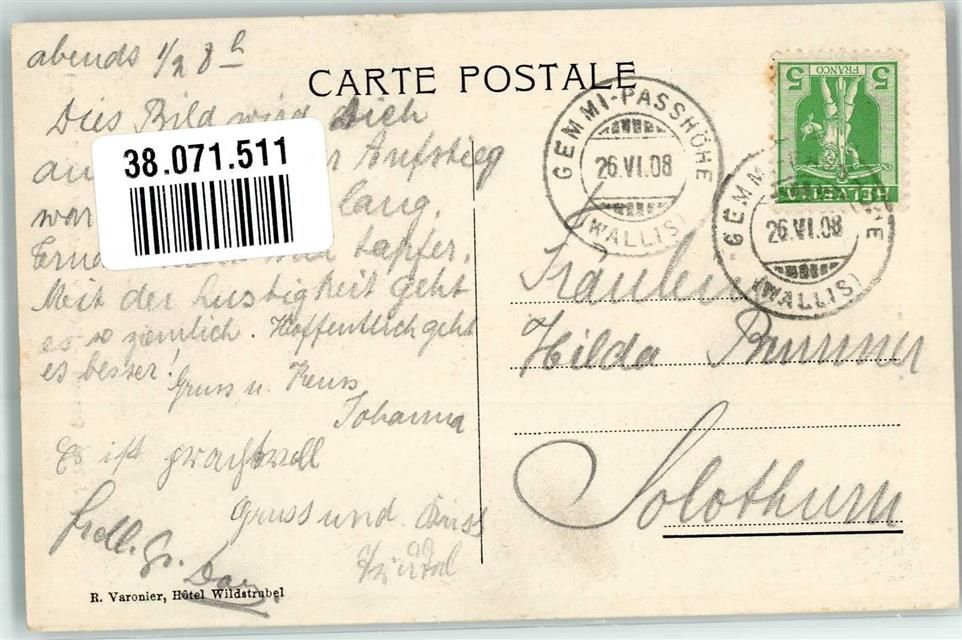 abends 1/2 8 h
CARTE POSTALE
Dies Bild wird Dich
38.071.511
Aufstieg
war lang,
tapfer.
Mit der Lustigkeit geht
es so ziemlich. Hoffentlich geht
es besser!
Gruss u. Kuss
Johanna
Es ist prachtvoll
Gruss und Kuss
R. Varonier, Hôtel Wildstrubel
GEMMI-PASSHÖHE
26.VI.08
(WALLIS)
5 FRANCO 5
HELVETIA
GEMMI-PASSHÖHE
26.VI.08
(WALLIS)
Fräulein
Hilda Brunner
Solothurn